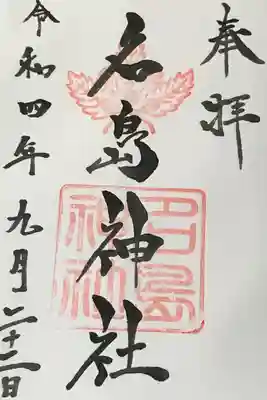 奉拝
名島神社
令和四年九月二十二日
名島
神社